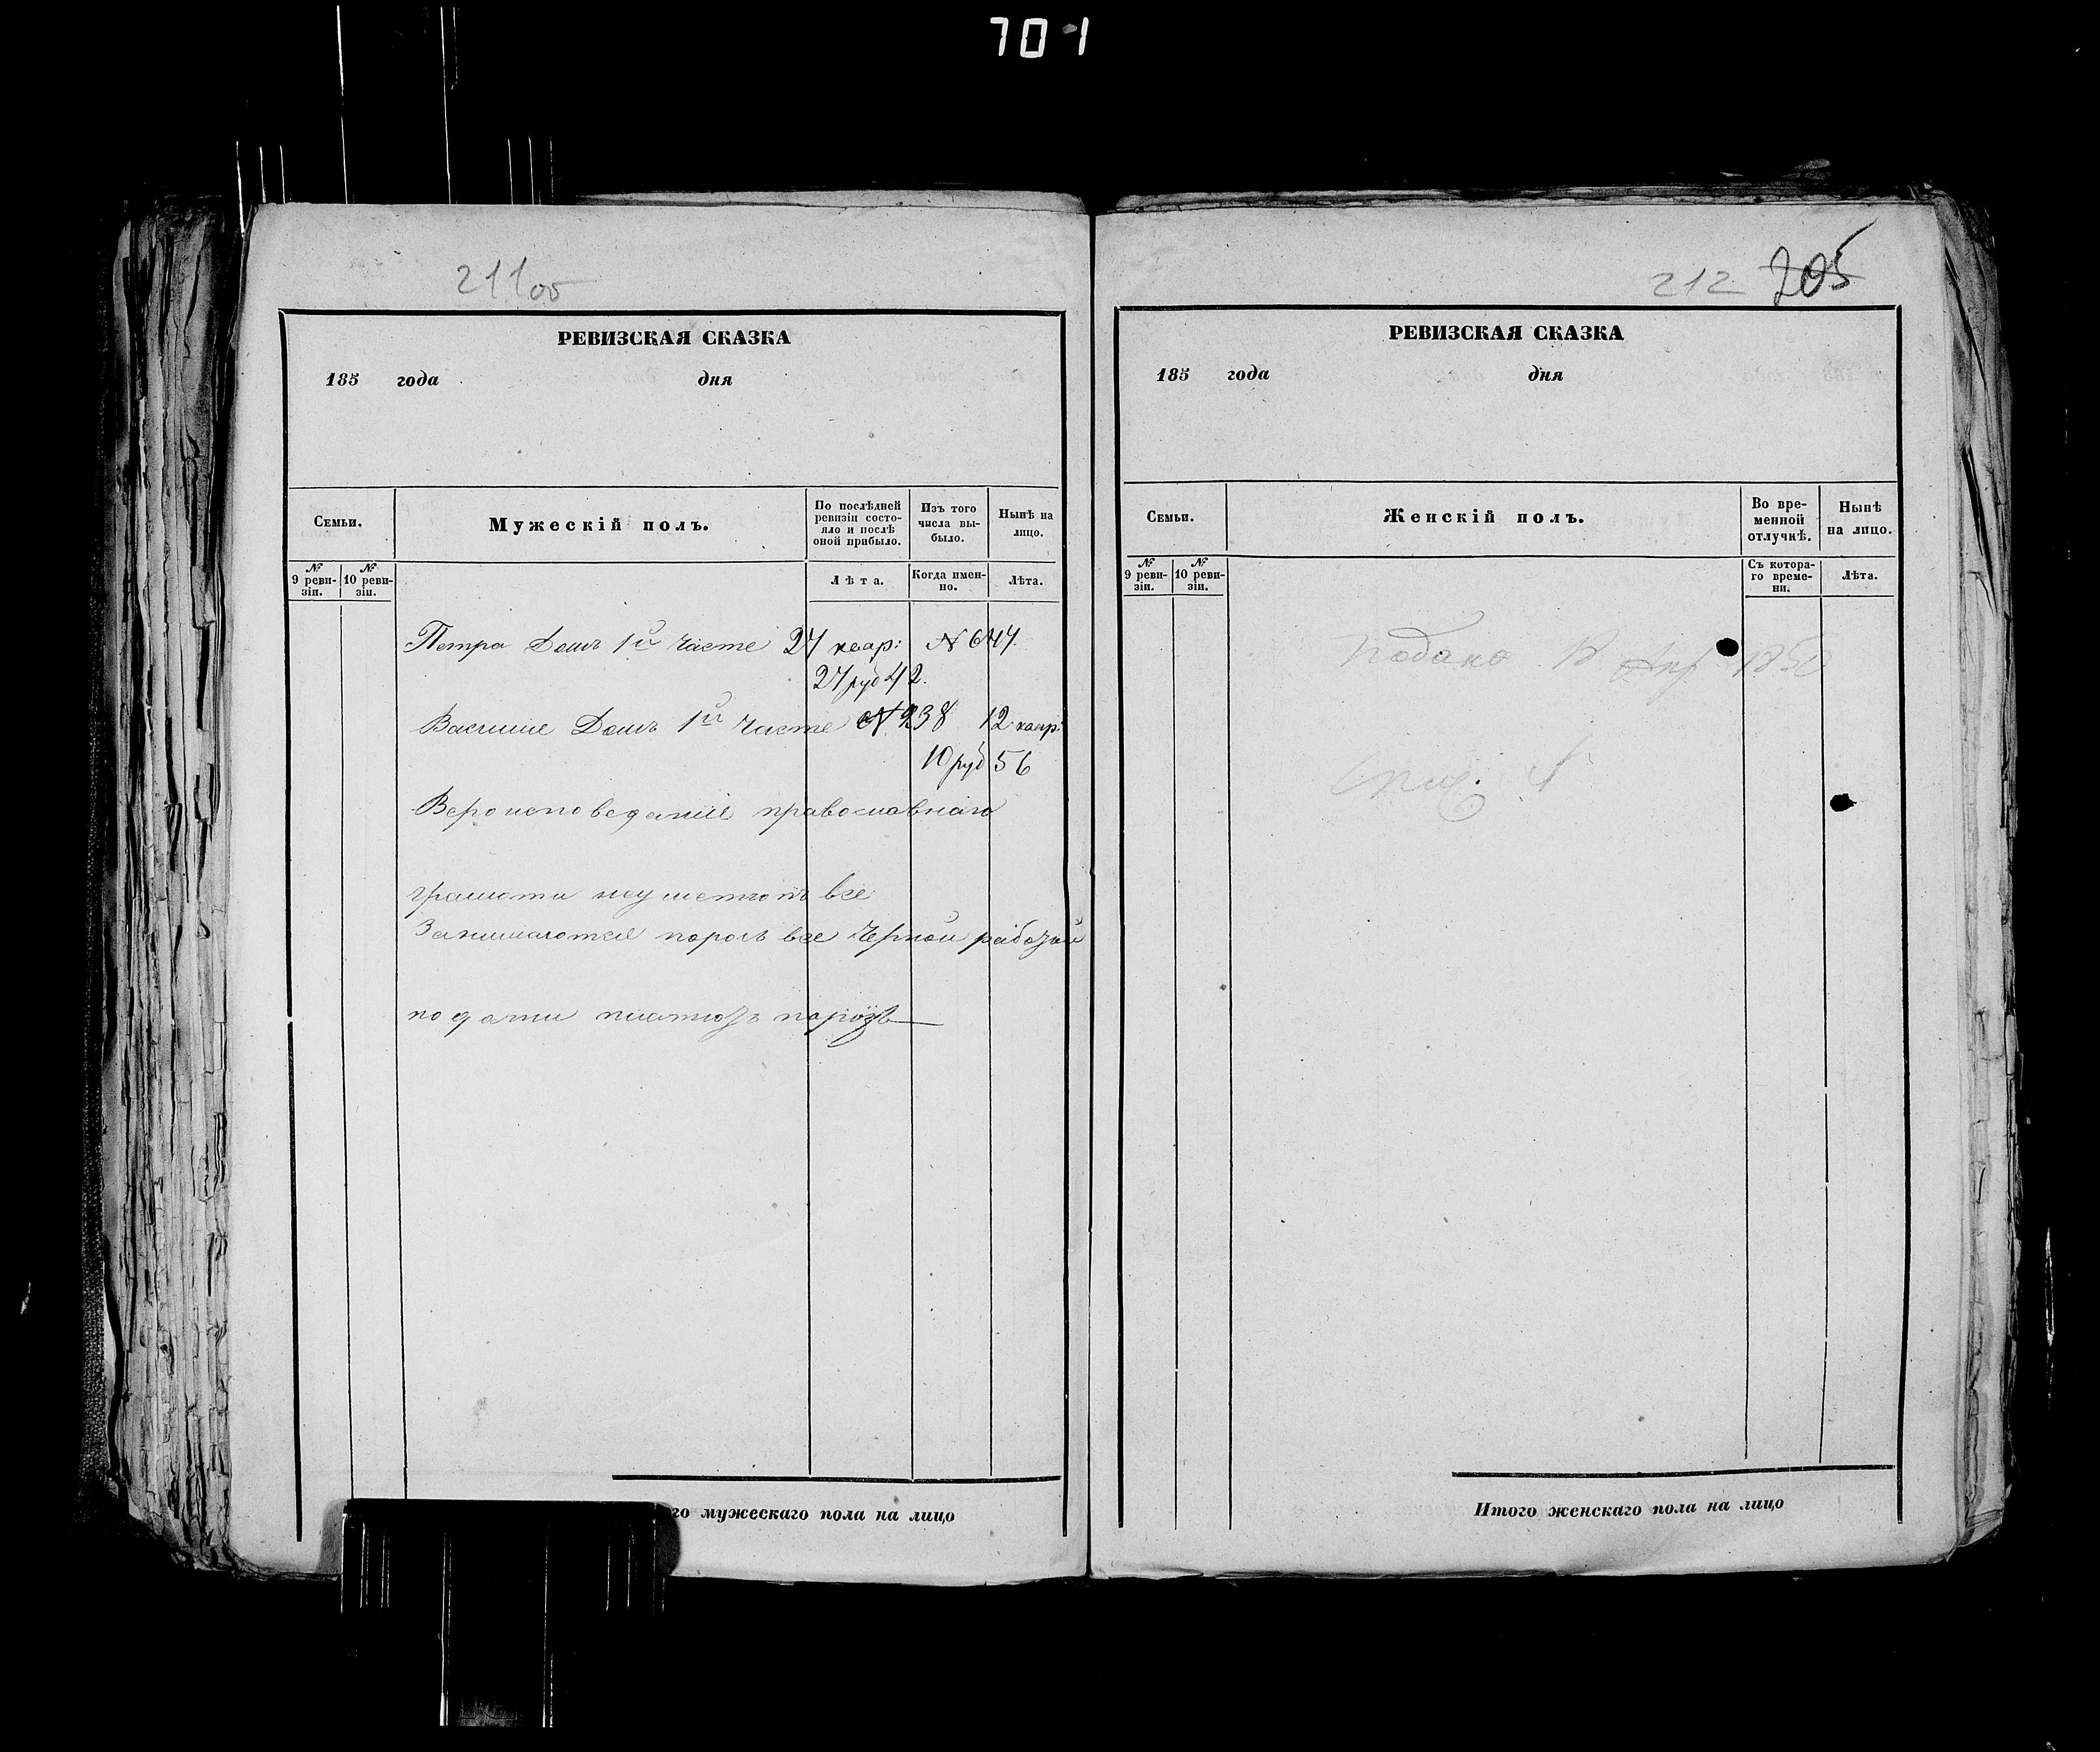 701
211об
РЕВИЗСКАЯ СКАЗКА
185 года дня
Семьи.
Мужескій полъ.
По послѣдней ревизіи состояло и послѣ оной прибыло.
Изъ того числа выбыло.
Нынѣ на лицо.
№ 9 ревизіи.
№ 10 ревизіи.
Лѣта.
Когда именно.
Лѣта.
Петра Домъ 1й части 27 квар: № 647.
27 руб 42.
Василие Домъ 1й части № 238 12 квар:
10 руб 56
Вероисповедание православнаго
грамоти неуметютъ все
Занимаютсе порозъ все Черной работой
подати платютъ порозъ
го мужескаго пола на лицо
212 205
РЕВИЗСКАЯ СКАЗКА
185 года дня
Семьи.
Женскій полъ.
Во временной отлучкѣ.
Нынѣ на лицо.
№ 9 ревизіи.
№ 10 ревизіи.
Съ котораго времени.
Лѣта.
Подано Апр 185
Итого женскаго пола на лицо